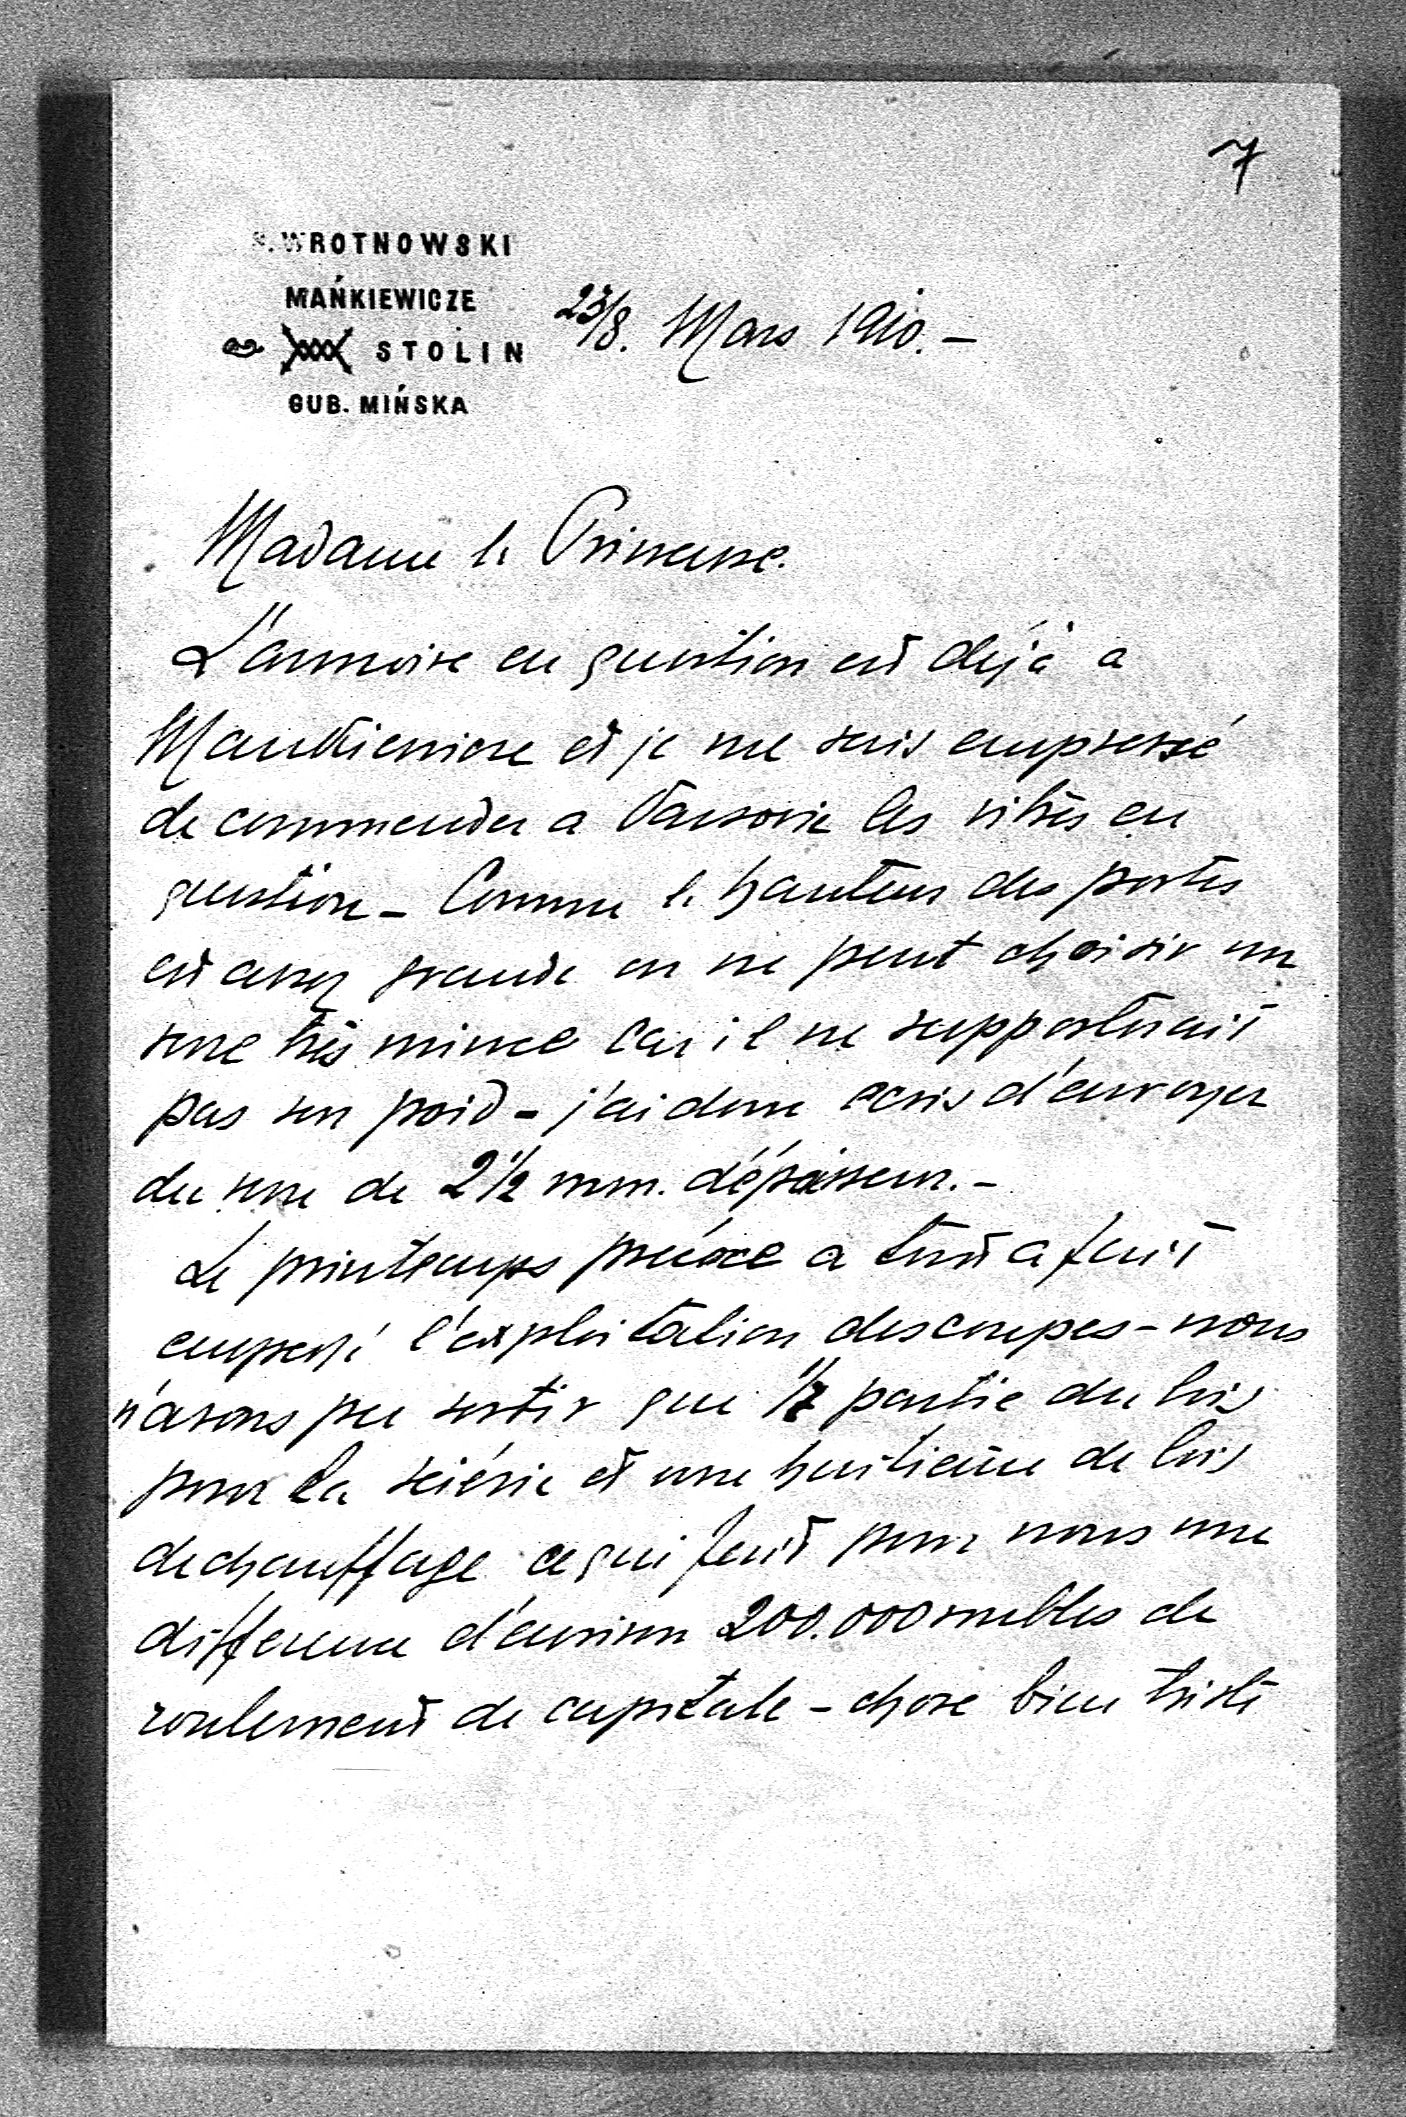 7
. WROTNOWSKI
MAŃKIEWICZE
STOLIN
GUB. MIŃSKA
23/8. Mars 1910. -
Madame la Princesse.
L'armoire en question est déjà a
et je me suis empressé
de commender a Varsovie les vitres en
question - Comme la hauteur des portes
est assez grande on ne peut choisir un
verre très mince car il ne supporterait
pas son poid - j'ai donc ecris d'envoyer
du verre de 2 1/2 mm. d'épaisseur. -
Le printemps précoce a tout a fait
empeché l'exploitation des coupes - nous
n'avons pu sortir que 1/7 partie du bois
pour la sciérie et une huitième de bois
de chauffage ce qui fait pour nous une
difference d'environ 200.000 roubles de
roulement de capitale - chose bien triste